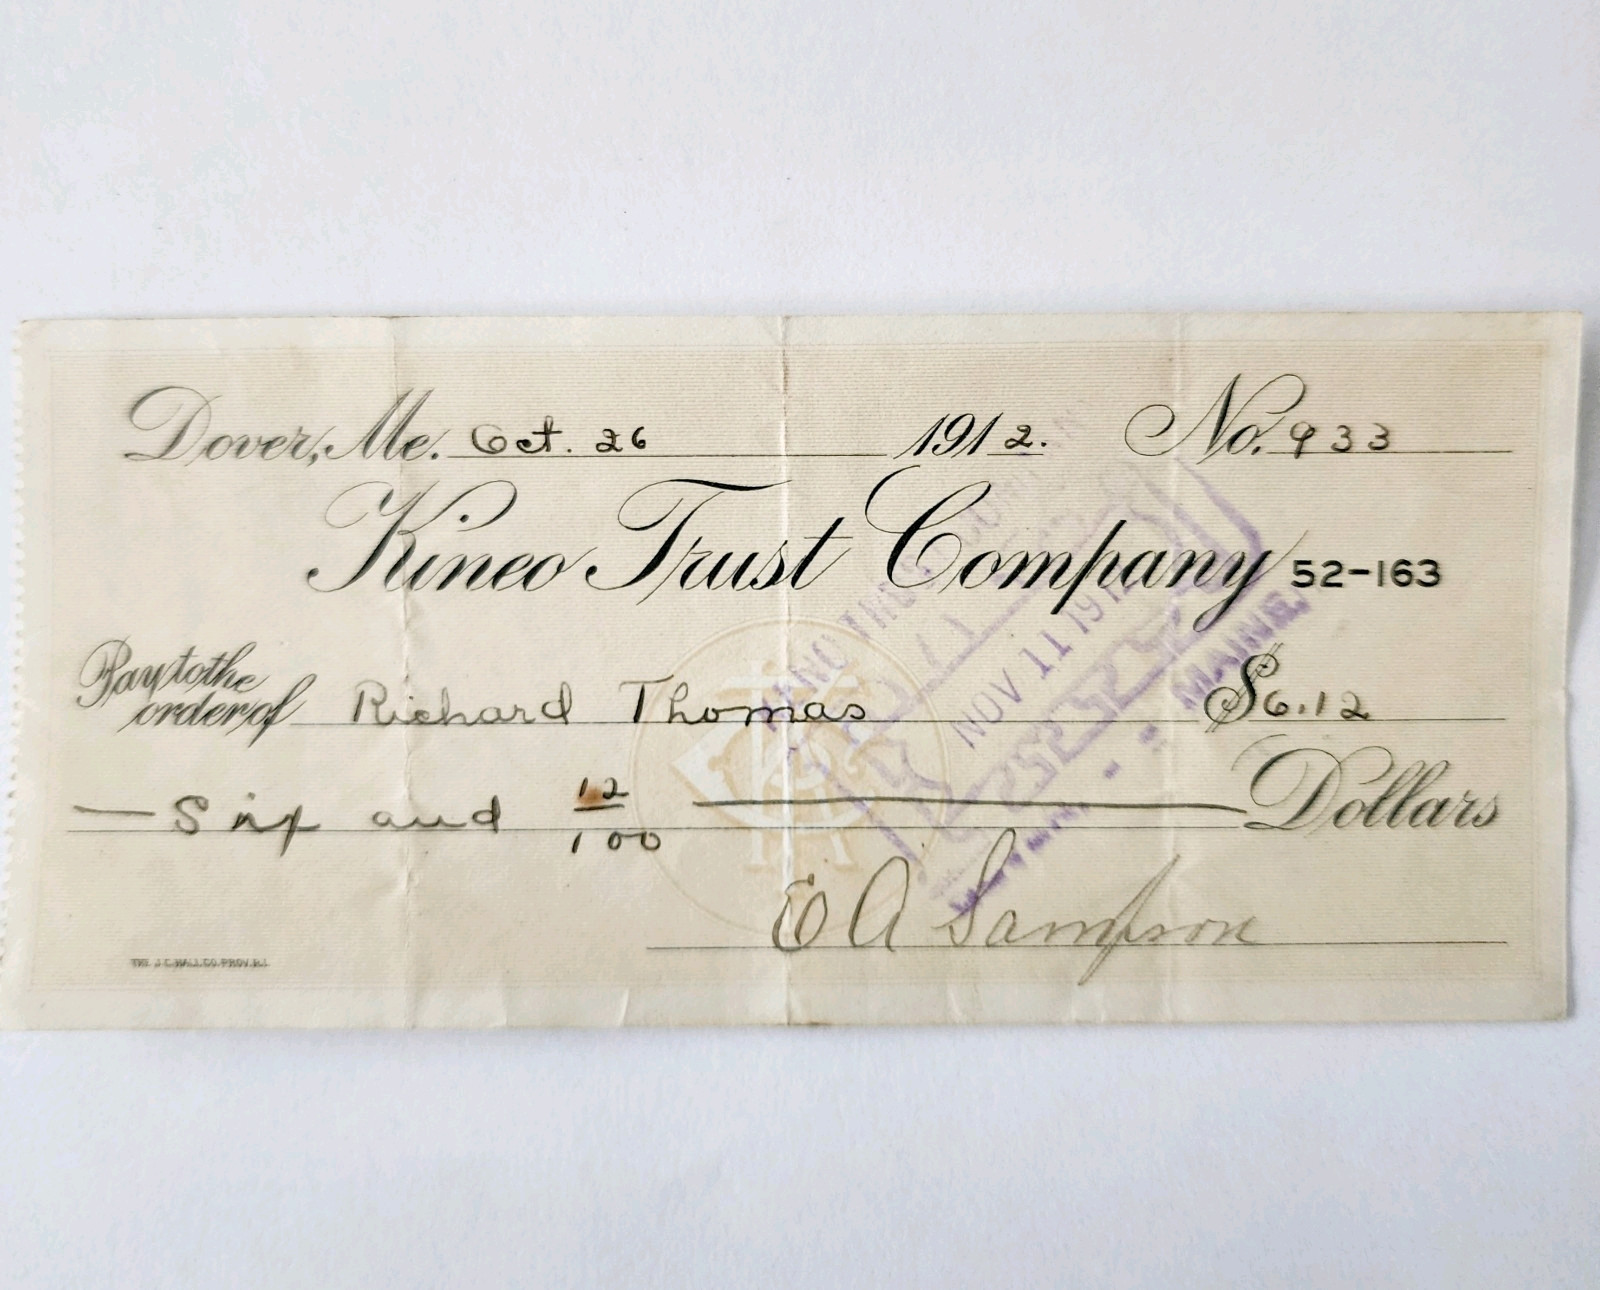 Dover, Me. Oct. 26 1912. No. 933
Kineo Trust Company 52-163
Pay to the
order of Richard Thomas $6.12
Six and 12/100 Dollars
E A Sampson
THE J.C. HALL CO. PROV. R.I.
KINEO TRUST COMPANY
NOV 11 1912
MAINE